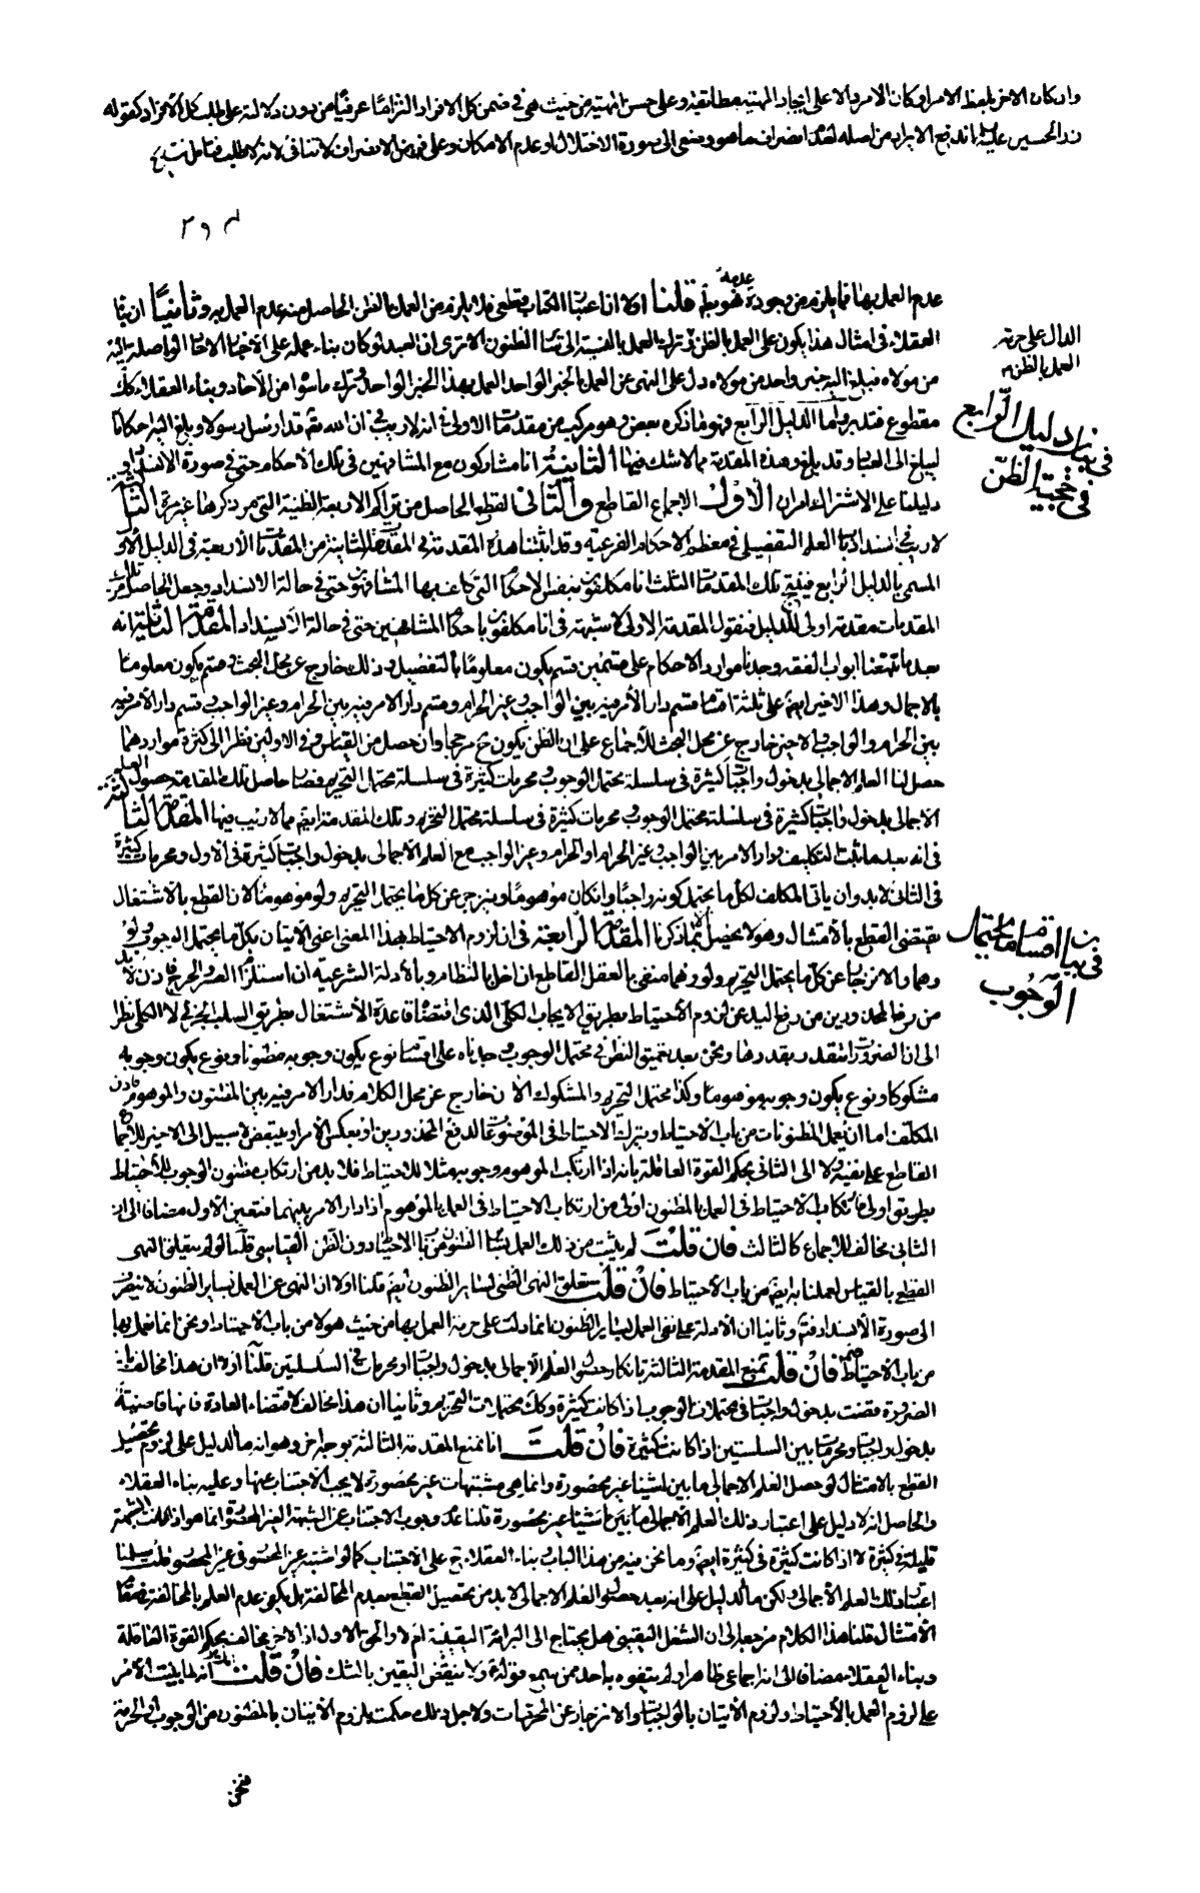 وان كان الاخر بلفظ الامر او كان الامر دالا على ايجاد المهية مطابقة وعلى حسن المهية من حيث هي في ضمن كل الافراد التزاما عرفيا من دون دلالة على طلب كل الافراد كقوله
زد الحسين عليه اندفع الايراد من اصله لعدم انصراف ما هو وينفى الى صورة الاختلال او عدم الامكان وعلى فرض الانصراف لا تنافي لانه لا طلب فتامل
٢ و ٣
عدم العمل بها فما يلزم من وجوده عدمه فهو بط قلنا اولا انا عبنا الكتاب قطعي فلا يلزم من العمل بالظن الحاصل منه عدم العمل به وثانيا ان بناء
العقلاء في امثال هذا يكون على العمل بالظن في ترك العمل بالنسبة الى ساير الظنون الا ترى ان العبد لو كان بناء عمله على الاخبار الاحاد الواصلة اليه
من مولاه فبلغ اليه خبر واحد من مولاه دل على النهي عن العمل بالخبر الواحد العمل بهذا الخبر الواحد وترك ما سواه من الآحاد وبناء العقلاء كك
مقطوع فتدبر واما الدليل الرابع فهو ما ذكره بعض وهو مركب من مقدمات الاولى انه لا ريب في ان الله تع قد ارسل رسولا وبلغ اليه احكاما
ليبلغ الى العباد وقد بلغ وهذه المقدمة مما لا شك فيها الثانية انا مشاركون مع المشافهين في تلك الاحكام حتى في صورة الانسداد و
دليلنا على الاشتراك امران الاول الاجماع القاطع والثاني القطع الحاصل من تراكم الادلة الظنية التي مر ذكرها غير مرة الثالثة
لا ريب في انسداد باب العلم التفصيلي في معظم الاحكام الفرعية وقد اثبتنا هذه المقدمة في المقدمة الثانية من المقدمات الاربعة في الدليل الاول
المسمى بالدليل الرابع فنتيجة تلك المقدمات الثلث انا مكلفون بنفس الاحكام التي كلف بها المشافهون حتى في حالة الانسداد ونجعل الحاصل من تلك
المقدمات مقدمة اولى للدليل فنقول المقدمة الاولى لا شبهة في انا مكلفون باحكام المشافهين حتى في حالة الانسداد المقدمة الثانية انه
بعد ما تتبعنا ابواب الفقه وجدنا موارد الاحكام على قسمين قسم يكون معلوما بالتفصيل وذلك خارج عن محل البحث وقسم يكون معلوما
بالاجمال وهذا الاخير ايضا على ثلثة اقسام قسم دار الامر فيه بين الواجب وغير الحرام وقسم دار الامر فيه بين الحرام وغير الواجب وقسم دار الامر فيه
بين الحرام والواجب والاخير خارج عن محل البحث للاجماع على ان الظن يكون ح مرجحا وان حصل من القياس وفي الاولين نظرا الى كثرة مواردهما
حصل لنا العلم الاجمالي بدخول واجبات كثيرة في سلسلة محتمل الوجوب ومحرمات كثيرة في سلسلة محتمل التحريم فصار حاصل تلك المقدمة حصول العلم
الاجمالي بدخول واجبات كثيرة في سلسلة محتمل الوجوب ومحرمات كثيرة في سلسلة محتمل التحريم وتلك المقدمة ايضا مما لا ريب فيها المقدمة الثالثة
في انه بعد ما ثبت التكليف ودار الامر بين الواجب وغير الحرام او الحرام وغير الواجب مع العلم الاجمالي بدخول واجبات كثيرة في الاول ومحرمات كثيرة
في الثاني لا بد وان ياتي المكلف لكل ما يحتمل كونه واجبا وان كان موهوما وينزجر عن كل ما يحتمل التحريم ولو موهوما لان القطع بالاشتغال
يقتضى القطع بالامتثال وهو لا يحصل الا بما ذكرنا المقدمة الرابعة في ان لزوم الاحتياط بهذا المعنى اعنى الاتيان بكل ما يحتمل الوجوب ولو
وهما والانزجار عن كل ما يحتمل التحريم ولو وهما منفى بالعقل القاطع ان اخل بالنظام وبالادلة الشرعية ان استلزم العسر والحرج فاذن لا بد
من رفع المحذورين من رفع اليد عن لزوم الاحتياط بطريق الايجاب الكلي الذي اقتضاه قاعدة الاشتغال بطريق السلب الجزئي لا الكلي نظرا
الى ان الضرورات تتقدر بقدرها ونحن بعد تعميق النظر في محتمل الوجوب وجدناه على اقسام نوع يكون وجوبه مظنونا ونوع يكون وجوبه
مشكوكا ونوع يكون وجوبه موهوما وكذا محتمل التحريم والمشكوك الان خارج عن محل الكلام فدار الامر فيه بين المظنون والموهوم فاذن
المكلف اما ان يعمل المظنونات من باب الاحتياط ويترك الاحتياط في الموهومات دفعا للمحذورين او بعكس الامر او يتبعض لا سبيل الى الاخير للاجماع
القاطع على نفيه ولا الى الثاني بحكم القوة العاقلة بانه اذا ارتكب الموهوم وجوبه مثلا للاحتياط فلا بد من ارتكاب مظنون الوجوب للاحتياط
بطريق اولى فارتكاب الاحتياط في العمل بالمظنون اولى من ارتكاب الاحتياط في العمل بالموهوم اذا دار الامر بينهما فتعين الاول مضافا الى ان
الثاني مخالف للاجماع كالثالث فان قلت لم يثبت من ذلك العمل بساير الظنون من باب الاحتياط دون الظن القياسي قلنا لو لم يتعلق النهى
القطع بالقياس لعملنا به ايضا من باب الاحتياط فان قلت يتعلق النهى الظني لساير الظنون ايضا قلنا اولا ان النهى عن العمل بساير الظنون لا ينصرف
الى صورة الانسداد فتم وثانيا ان الادلة على نفى العمل بساير الظنون انما دلت على حرمة العمل بها من حيث هو لا من باب الاحتياط ونحن انما نعمل بها
من باب الاحتياط فان قلت نمنع المقدمة الثالثة بانكار حصول العلم الاجمالي بدخول واجبات او محرمات في السلسلتين قلنا اولا ان هذا مخالف
الضرورة قضت بدخول واجبات في محتملات الوجوب اذا كانت كثيرة وكك محتملات التحريم وثانيا ان هذا مخالف لاقتضاء العادة فانها قاضية
بدخول واجبات ومحرمات بين السلسلتين اذا كانت كثيرة فان قلت انا نمنع المقدمة الثالثة بوجه اخر وهو انه ما الدليل على لزوم تحصيل
القطع بالامتثال لو حصل العلم الاجمالي ما بين اشياء غير محصورة وانما هي مشتبهات غير محصورة لا يجب الاجتناب عنها وعليه بناء العقلاء
والحاصل انه لا دليل على اعتبار ذلك العلم الاجمالي ما بين اشياء غير محصورة قلنا عدم وجوب الاجتناب عن الشبهة الغير المحصورة انما هو اذا كانت المشتبهة
قليلة في كثيرة لا اذا كانت كثيرة في كثيرة ايضا وما نحن فيه من هذا الباب بناء العقلاء ح على الاجتناب كما لو اشتبه غير المحصور في غير المحصور فان قلت سلمنا
اعتبار ذلك العلم الاجمالي ولكن ما الدليل على انه بعد حصول العلم الاجمالي لا بد من تحصيل القطع بعدم المخالفة بل يكفي عدم العلم بالمخالفة في مقام
الامتثال قلنا هذا الكلام مرجعه الى ان الشغل اليقيني هل يحتاج الى البرائة اليقينية ام لا والحق الاول اذ الاخر مخالف بحكم القوة العاقلة
وبناء العقلاء مضافا الى انه اجماعي ظاهرا ولم يتفوه به احد ممن يسمع قوله ولا ينقض اليقين بالشك فان قلت انه لما بنيت الامر
على لزوم العمل بالاحتياط ولزوم الاتيان بالواجبات والانزجار عن المحرمات ولاجل ذلك حكمت بلزوم الاتيان بالمظنون من الوجوب او الحرمة
فنحن
الدال على حرمة
العمل بالظن
في بيان دليل الرابع
في حجية الظن
في بيان اقسام محتمل
الوجوب